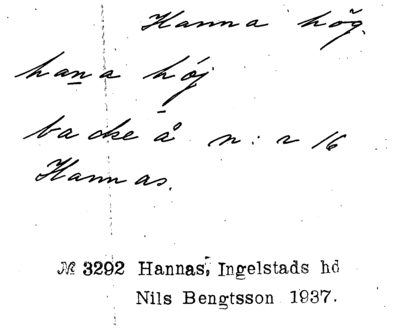 Hanna hög.
hana höj
backe å n:r 16
Hannas.
№ 3292 Hannas, Ingelstads hd
Nils Bengtsson 1937.